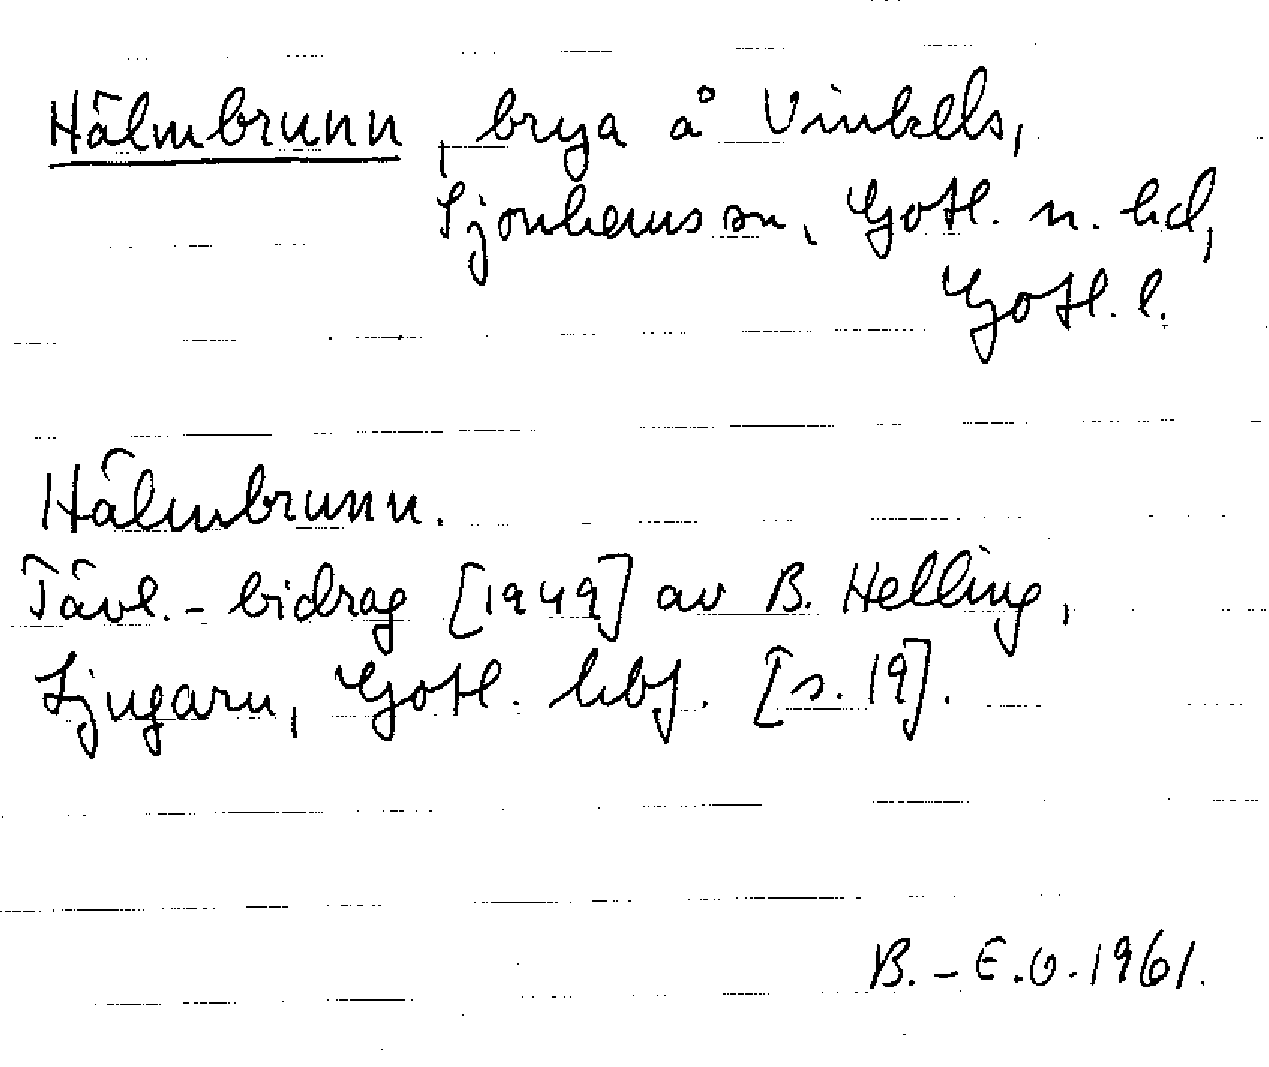 Hälmbrunn, brya å Vinkells,
Sjonhems sn, Gotl. n. hd,
Gotl. l.
Hälmbrunn.
Tävl.-bidrag [1949] av B. Helling,
Ljugarn, Gotl. hbf. [s. 19].
B.-E.O. 1961.